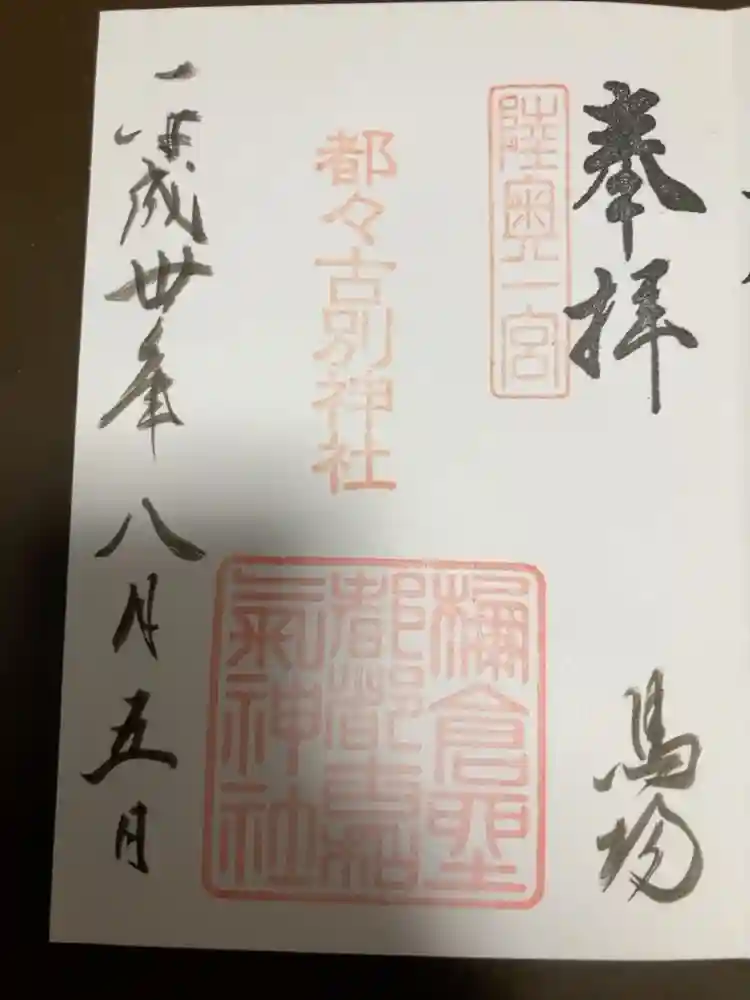 奉拝
馬場
陸奥一宮
都々古別神社
倉
都都古和
氣神社
平成卅年八月五日